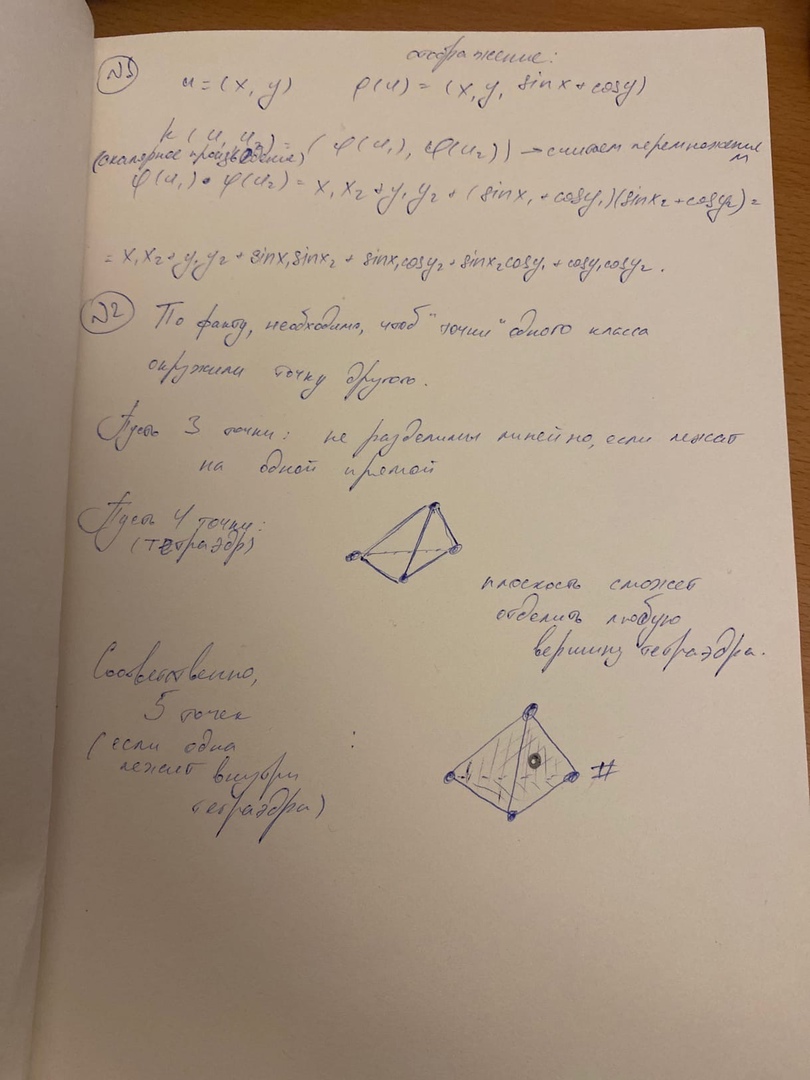 отображение:
№1 u = (x, y) φ(u) = (x, y, sinx + cosy)
k(u₁, u₂) = (φ(u₁), φ(u₂)) → считаем перемножением
(скалярное произведение)
φ(u₁) • φ(u₂) = x₁x₂ + y₁y₂ + (sinx₁ + cosy₁)(sinx₂ + cosy₂) =
= x₁x₂ + y₁y₂ + sinx₁sinx₂ + sinx₁cosy₂ + sinx₂cosy₁ + cosy₁cosy₂.
№2 По факту, необходимо, чтоб "точки" одного класса
окружили точку другого.
Пусть 3 точки: не разделимы линейно, если лежат
на одной прямой
Пусть 4 точки:
(тетраэдр)
плоскость сможет
отделить любую
вершину тетраэдра.
Соответственно,
5 точек
(если одна
лежит внутри
тетраэдра)
#